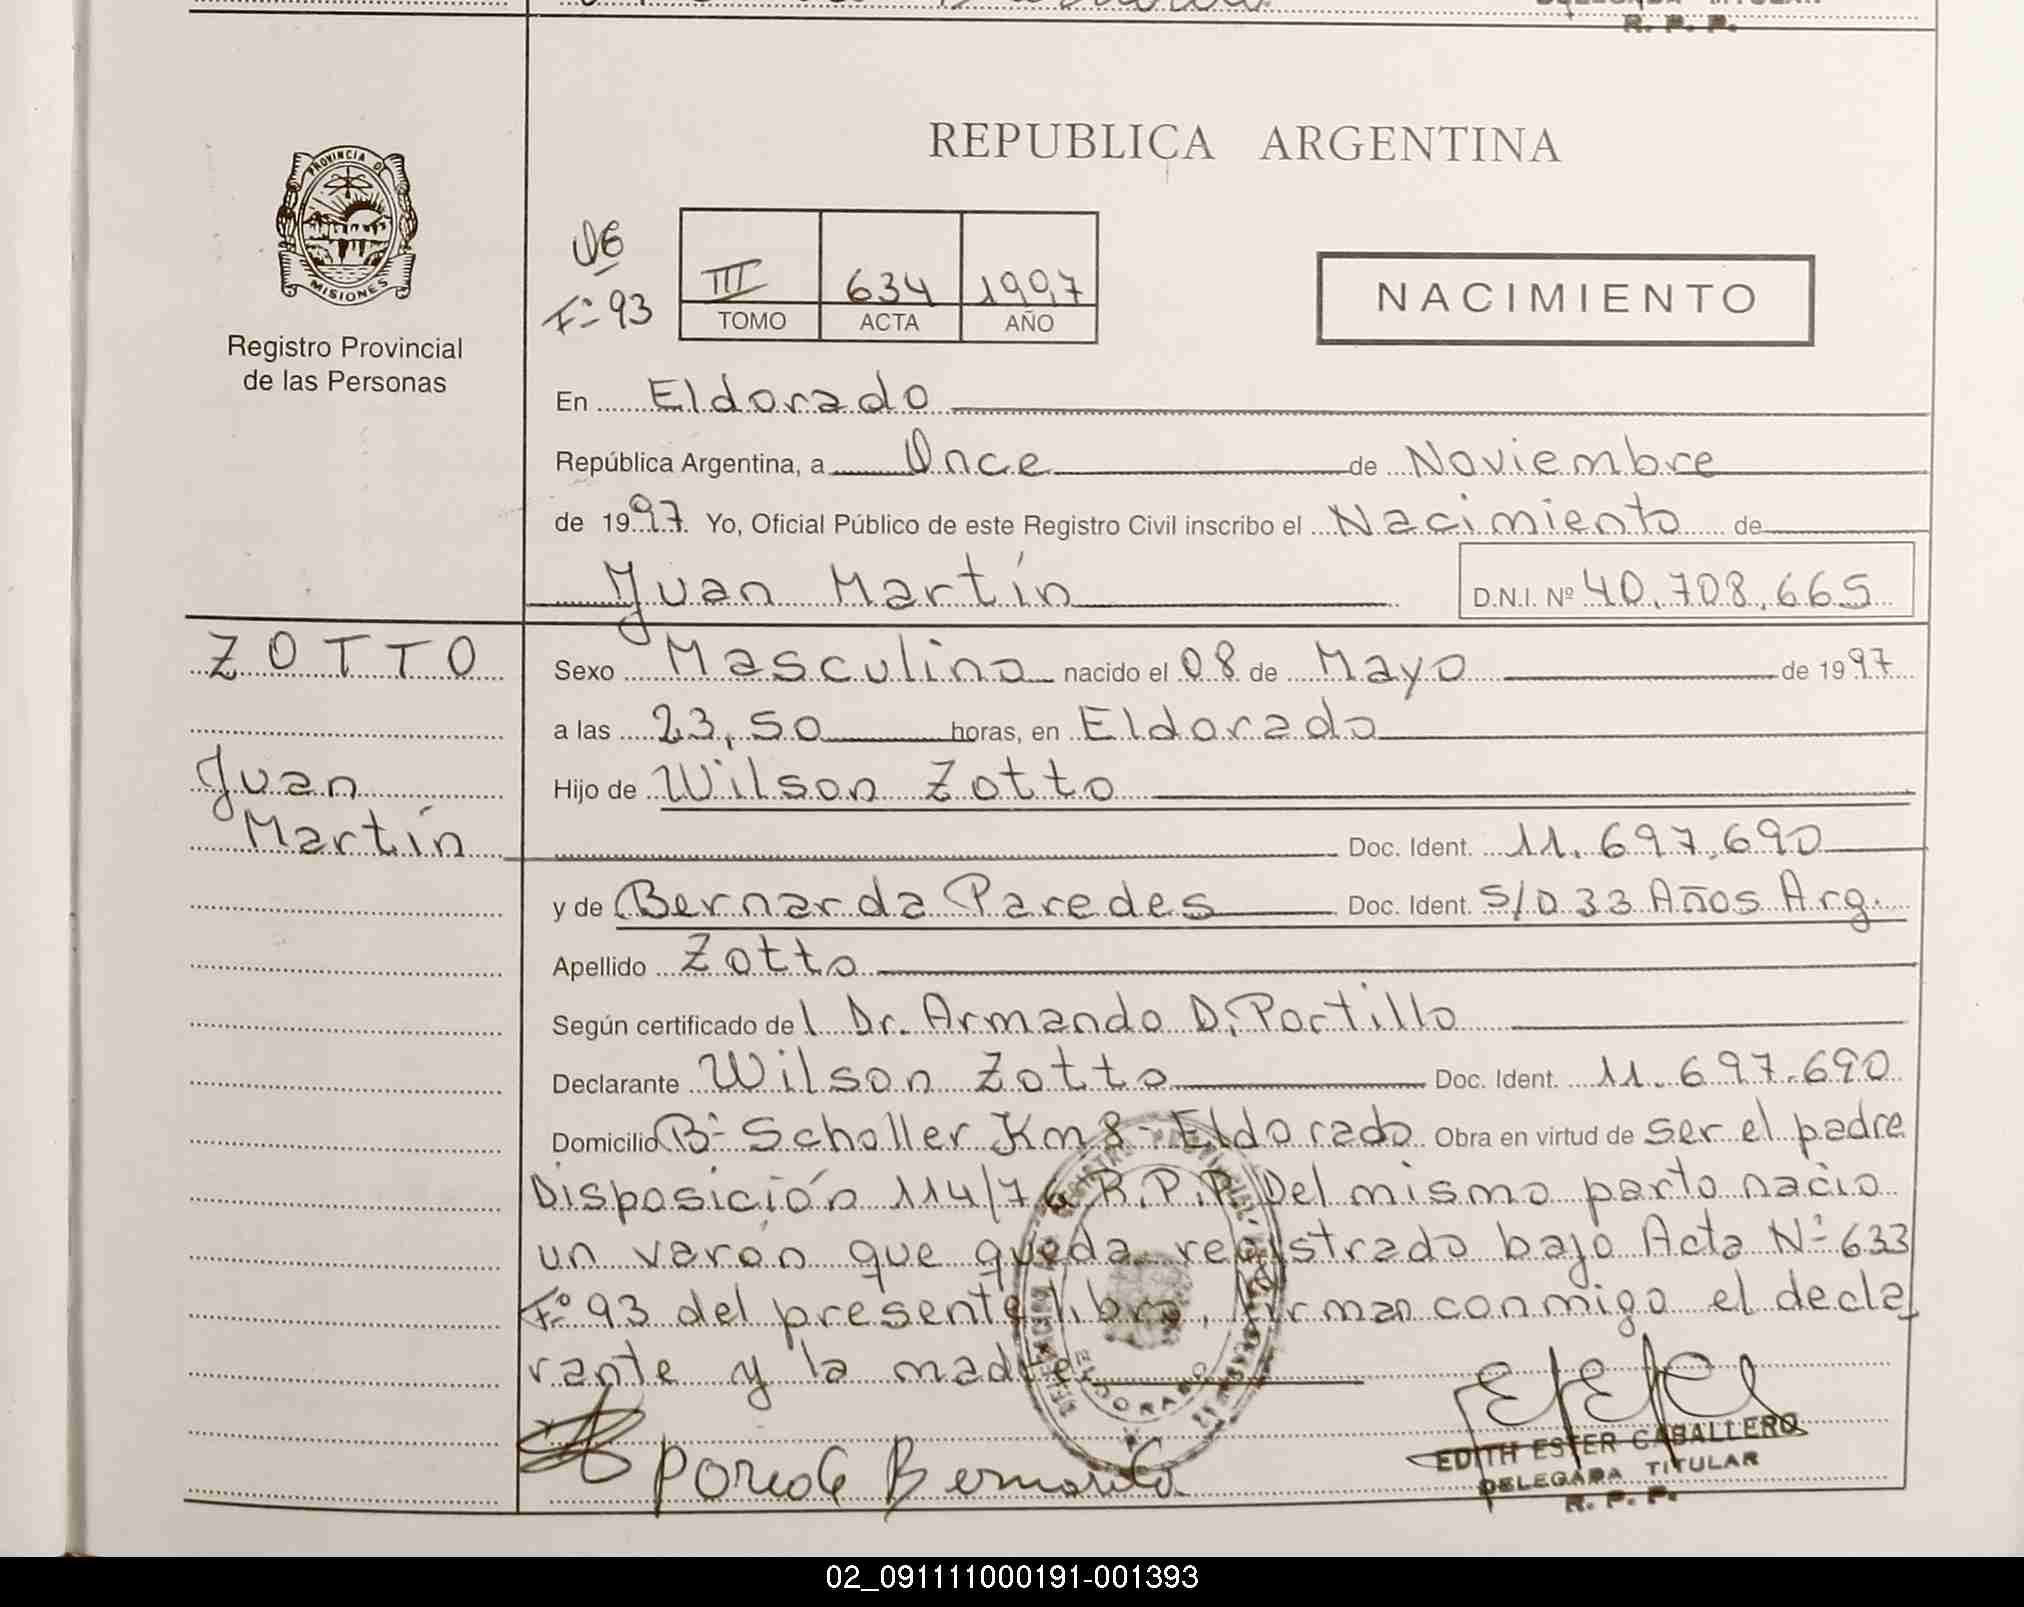 R. P. P.
REPUBLICA ARGENTINA
PROVINCIA DE
MISIONES
Registro Provincial
de las Personas
F:º 93
III 634 1997
TOMO ACTA AÑO
NACIMIENTO
En Eldorado
República Argentina, a Once de Noviembre
de 1997. Yo, Oficial Público de este Registro Civil inscribo el Nacimiento de
Juan Martín D.N.I. Nº 40.708.665
ZOTTO
Juan
Martín
Sexo Masculino nacido el 08 de Mayo de 1997
a las 23,50 horas, en Eldorado
Hijo de Wilson Zotto
Doc. Ident. 11.697.690
y de Bernarda Paredes Doc. Ident. S/D 33 Años Arg.
Apellido Zotto
Según certificado del Dr. Armando D. Portillo
Declarante Wilson Zotto Doc. Ident. 11.697.690
Domicilio Bº Scholler Km 8 - Eldorado Obra en virtud de ser el padre
Disposición 114/76 R.P.P. Del mismo parto nacio
un varón que queda registrado bajo Acta Nº 633
Fº 93 del presente libro, firman conmigo el decla
rante y la madre
EDITH ESTER CABALLERO
DELEGADA TITULAR
R. P. P.
02_091111000191-001393